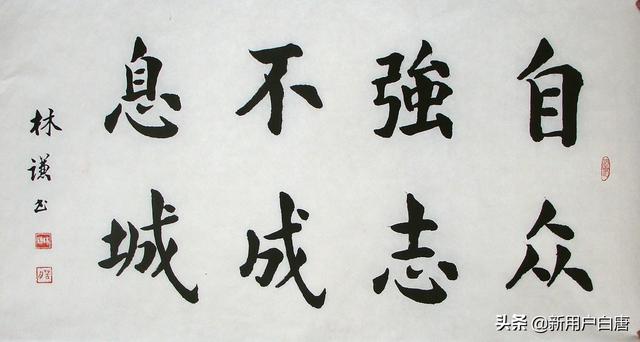 自強不息
众志成城
林謙书
头条 @新用户白唐